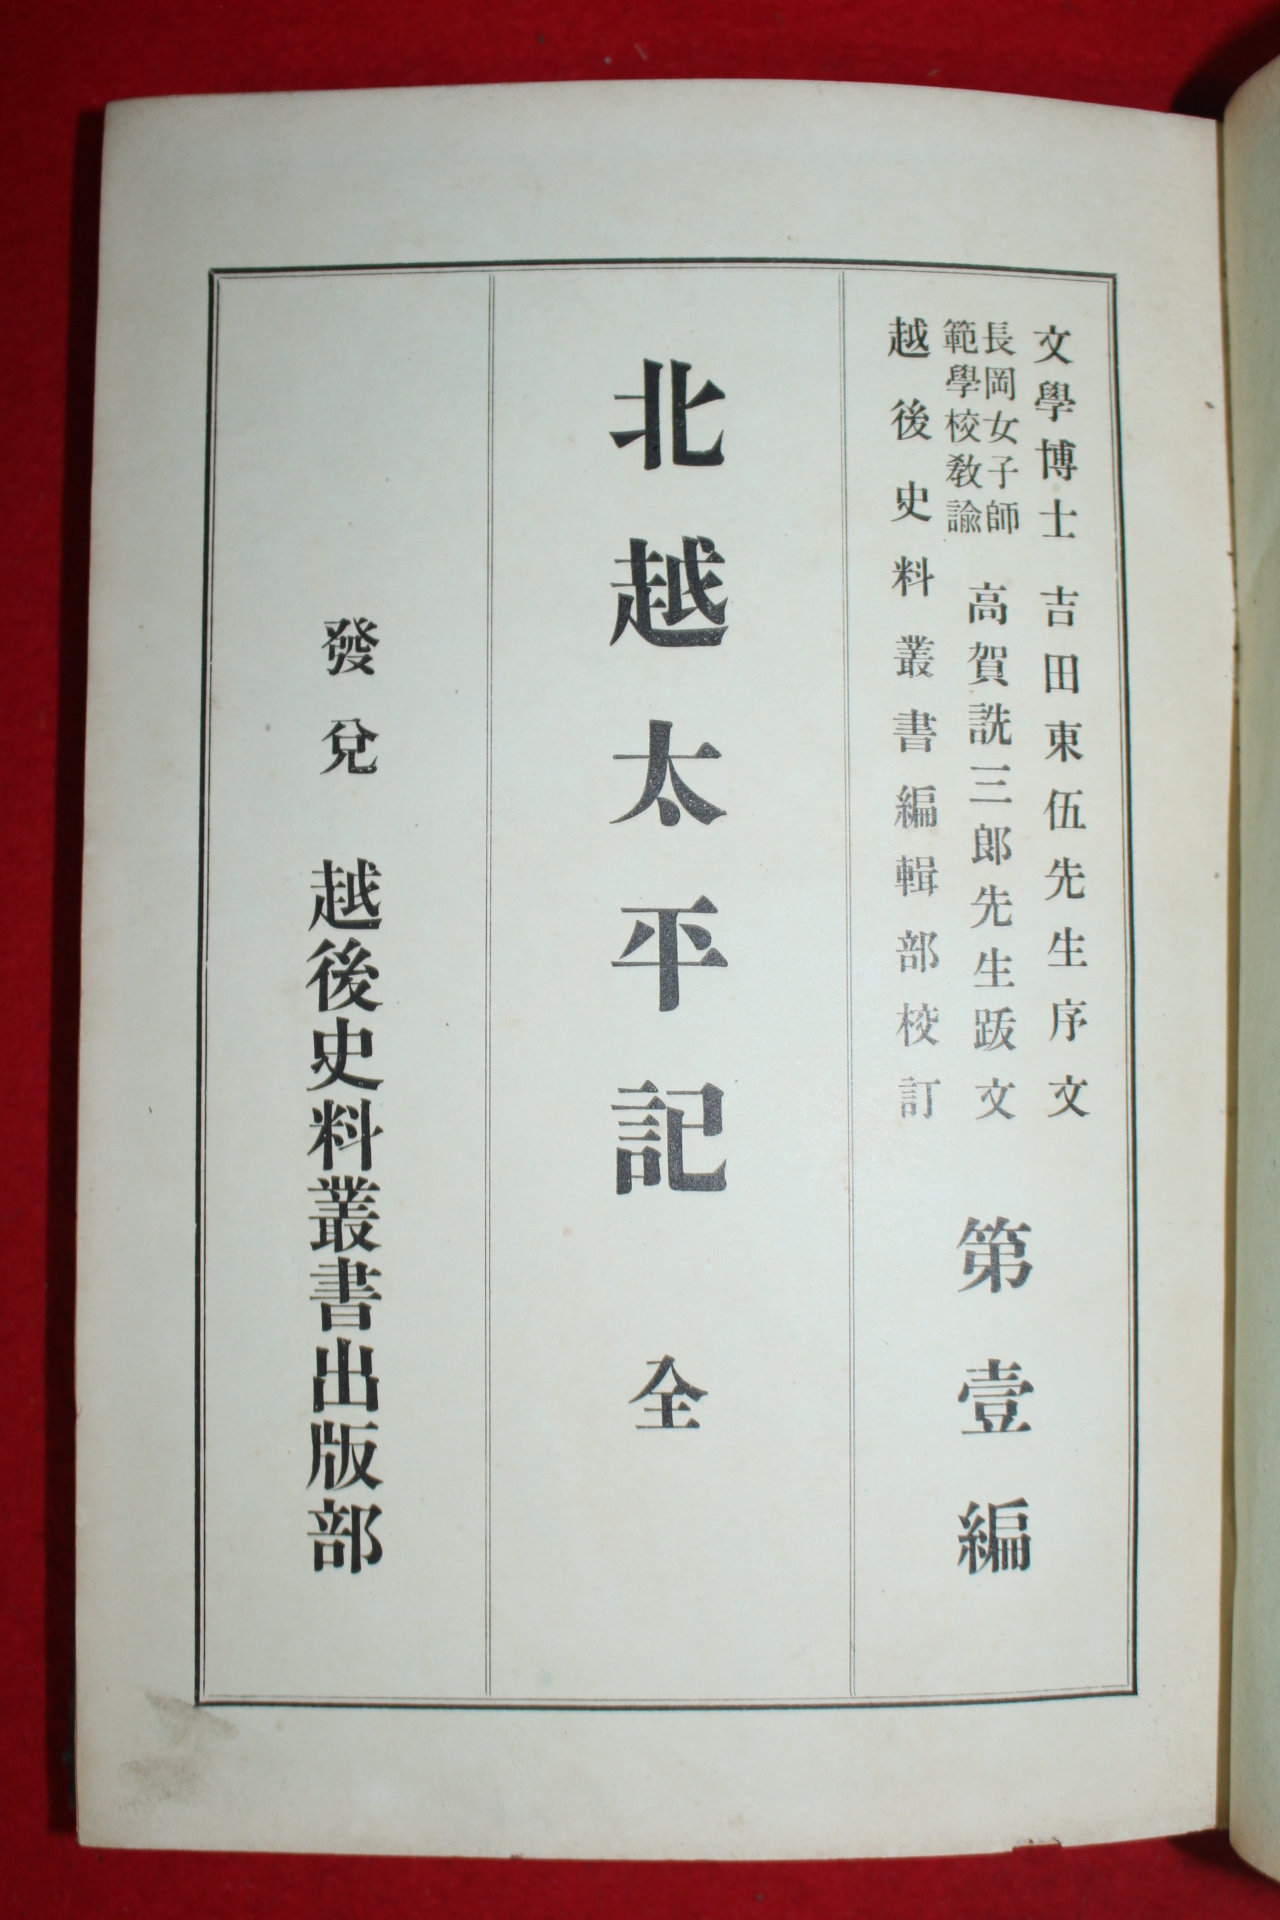 文學博士 吉田東伍先生序文
長岡女子師
範學校敎諭 高賀詵三郎先生跋文
越後史料叢書編輯部校訂
第壹編
北越太平記 全
發兌 越後史料叢書出版部